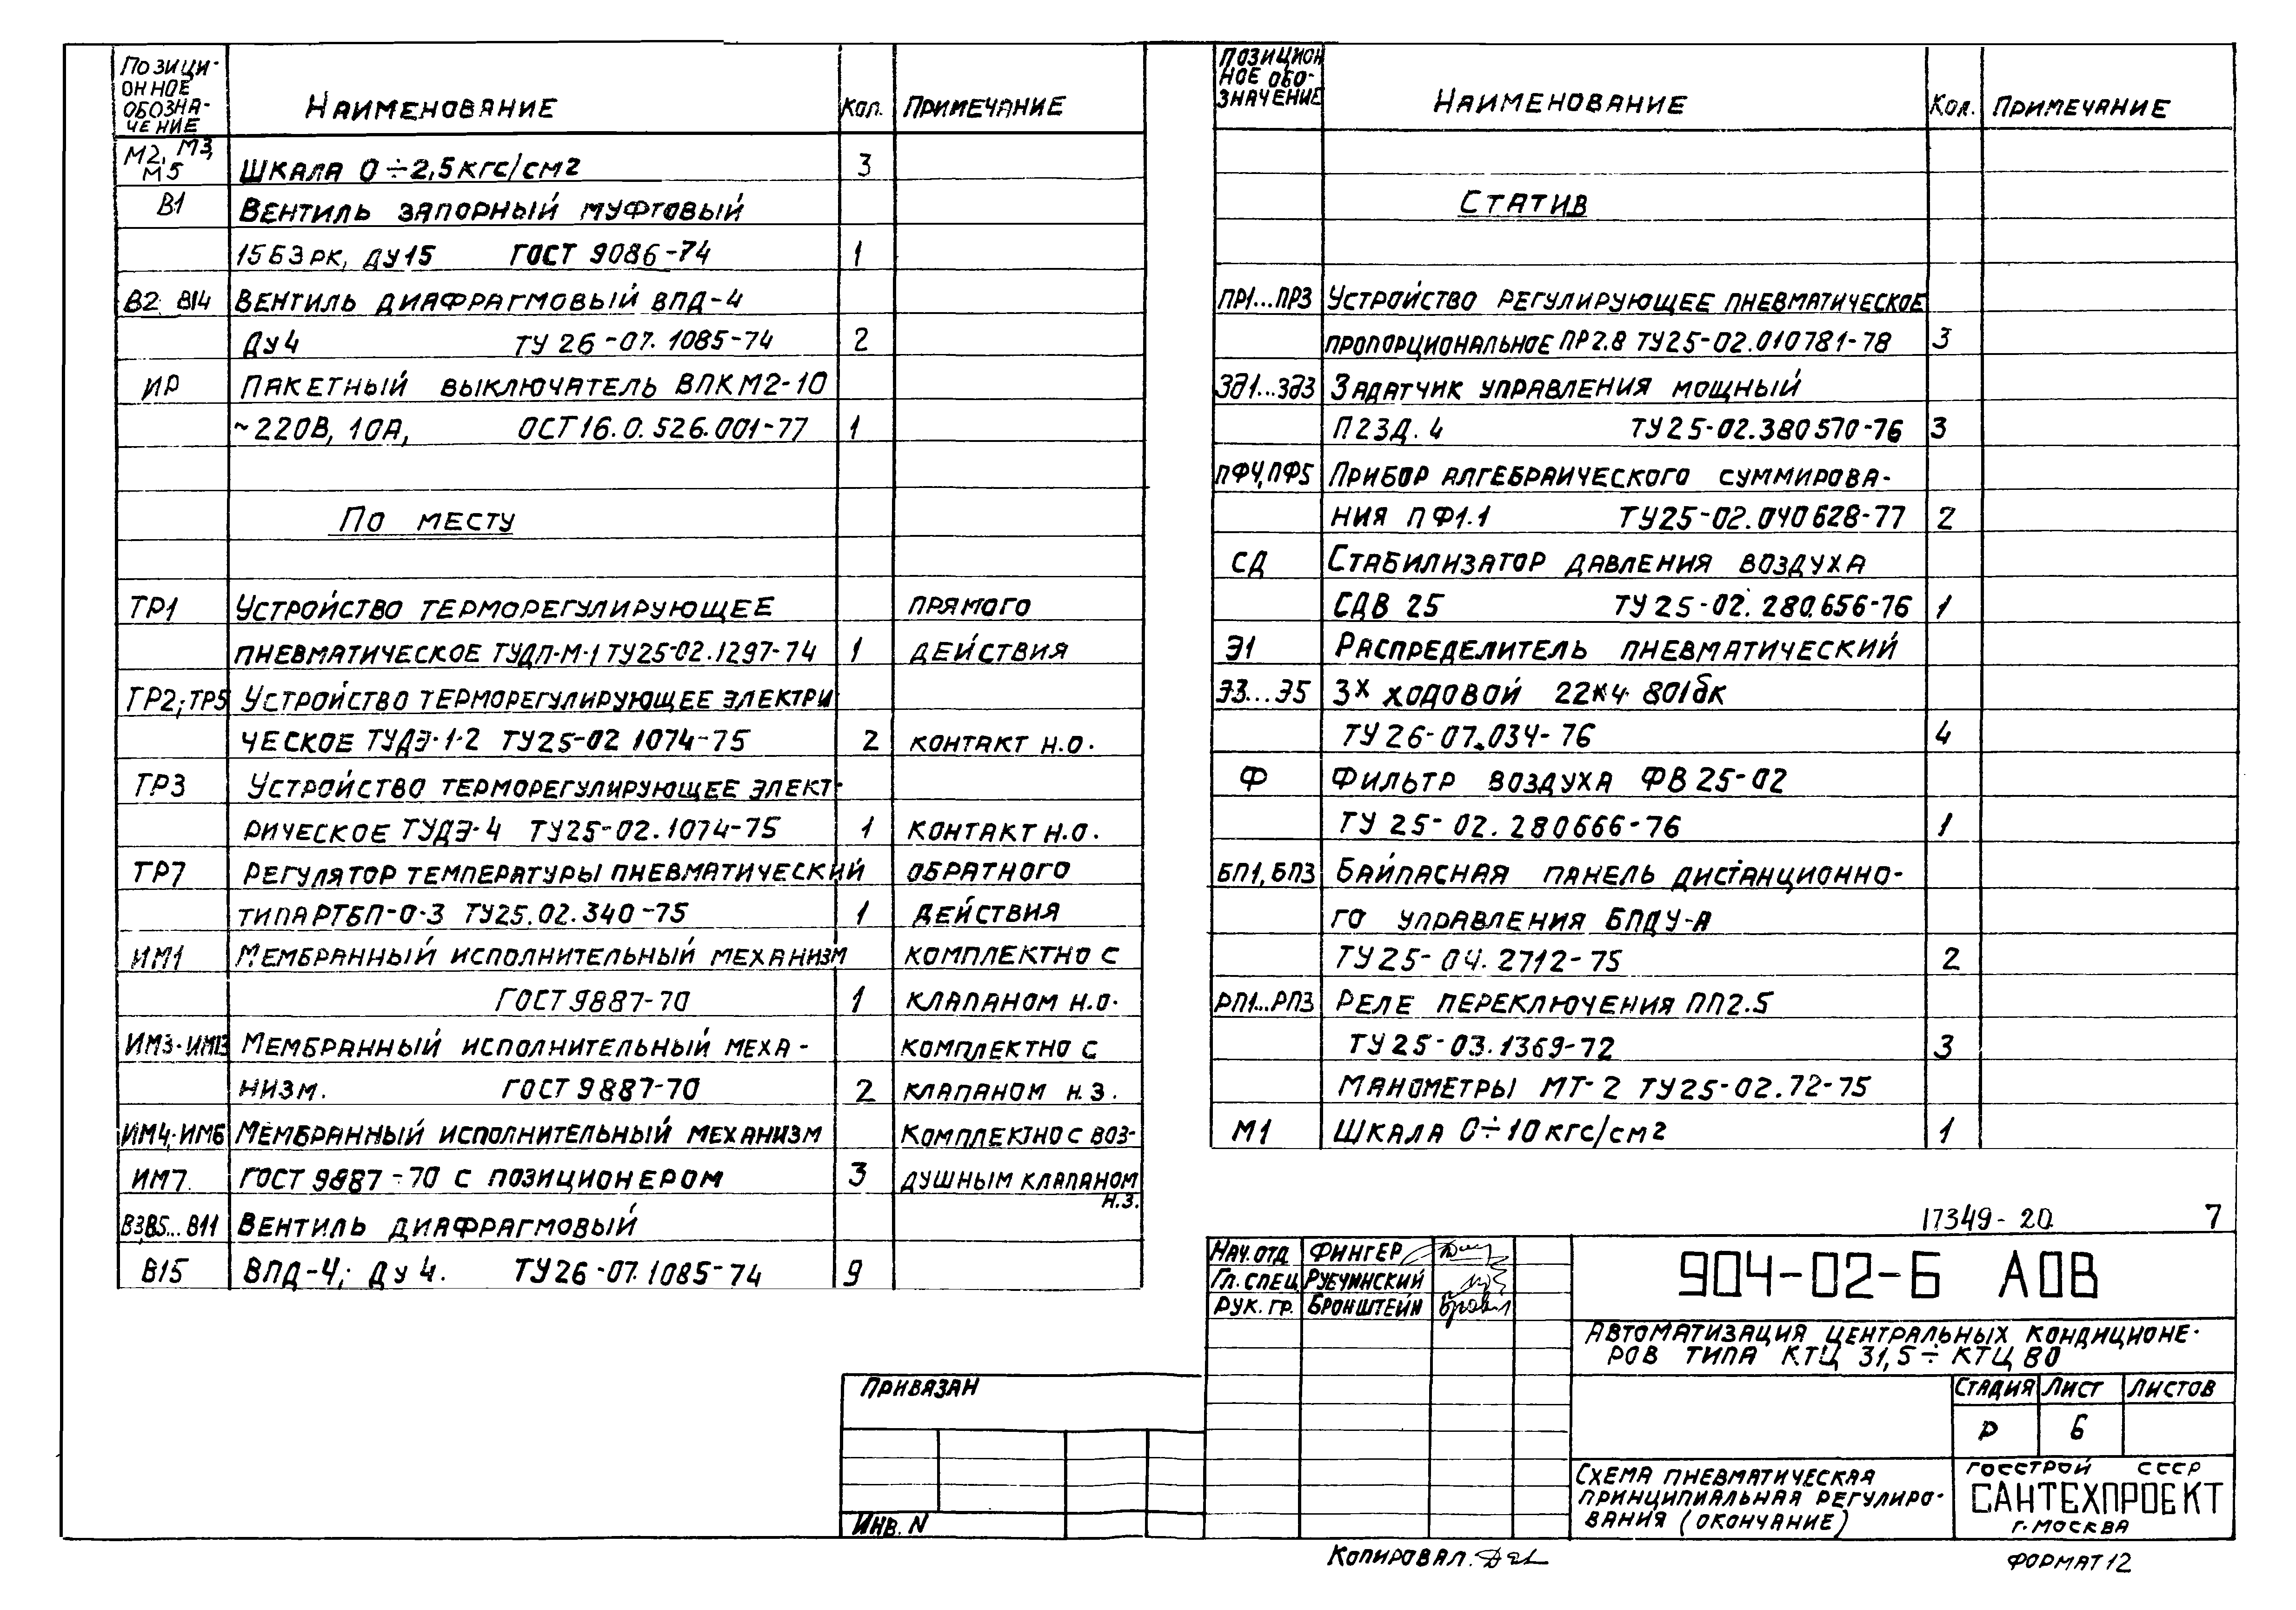 Позици-
онное
обозна-
чение
Наименование
Кол.
Примечание
М2, М3,
М5
Шкала 0÷2,5 кгс/см2
3
В1
Вентиль запорный муфтовый
15Б3рк, Ду15 ГОСТ 9086-74
1
В2; В14
Вентиль диафрагмовый ВПД-4
Ду4 ТУ 26-07.1085-74
2
ИР
Пакетный выключатель ВПКМ2-10
~220В, 10А, ОСТ16.0.526.001-77
1
По месту
ТР1
Устройство терморегулирующее
прямого
пневматическое ТУДП-М-1 ТУ25-02.1297-74
1
действия
ТР2; ТР5
Устройство терморегулирующее электри
ческое ТУДЭ-1-2 ТУ25-02 1074-75
2
контакт н.о.
ТР3
Устройство терморегулирующее элект-
рическое ТУДЭ-4 ТУ25-02.1074-75
1
контакт н.о.
ТР7
Регулятор температуры пневматический
обратного
типа РТБП-0-3 ТУ25.02.340-75
1
действия
ИМ1
Мембранный исполнительный механизм
комплектно с
ГОСТ 9887-70
1
клапаном н.о.
ИМ3; ИМ13
Мембранный исполнительный меха-
комплектно с
низм. ГОСТ 9887-70
2
клапаном н.з.
ИМ4; ИМ6
Мембранный исполнительный механизм
Комплектно с воз-
ИМ7
ГОСТ 9887-70 с позиционером
3
душным клапаном
н.з.
В3, В5...В11
Вентиль диафрагмовый
В15
ВПД-4; Ду 4. ТУ26-07.1085-74
9
Позицион
ное обо-
значение
Наименование
Кол.
Примечание
Статив
ПР1...ПР3
Устройство регулирующее пневматическое
пропорциональное ПР2.8 ТУ25-02.010781-78
3
Зд1...Зд3
Задатчик управления мощный
П23Д.4 ТУ25-02.380570-76
3
ПФ4, ПФ5
Прибор алгебраического суммирова-
ния ПФ1.1 ТУ25-02.040628-77
2
СД
Стабилизатор давления воздуха
СДВ 25 ТУ25-02.280.656-76
1
Э1
Распределитель пневматический
Э3...Э5
3х ходовой 22кч 801бк
ТУ 26-07.034-76
4
Ф
Фильтр воздуха ФВ 25-02
ТУ 25-02.280666-76
1
БП1, БП3
Байпасная панель дистанционно-
го управления БПДУ-А
ТУ25-04.2712-75
2
РП1...РП3
Реле переключения ПП2.5
ТУ25-03.1369-72
3
Манометры МТ-2 ТУ25-02.72-75
М1
Шкала 0÷10 кгс/см2
1
17349-20 7
Нач. отд Фингер
Гл. спец. Рубчинский
Рук. гр. Бронштейн
904-02-6 АОВ
Автоматизация центральных кондиционе-
ров типа КТЦ 31,5÷КТЦ 80
Стадия Лист Листов
Р 6
Схема пневматическая
принципиальная регулиро-
вания (окончание)
Госстрой СССР
САНТЕХПРОЕКТ
г. Москва
Привязан
Инв. N
Копировал.
Формат 12